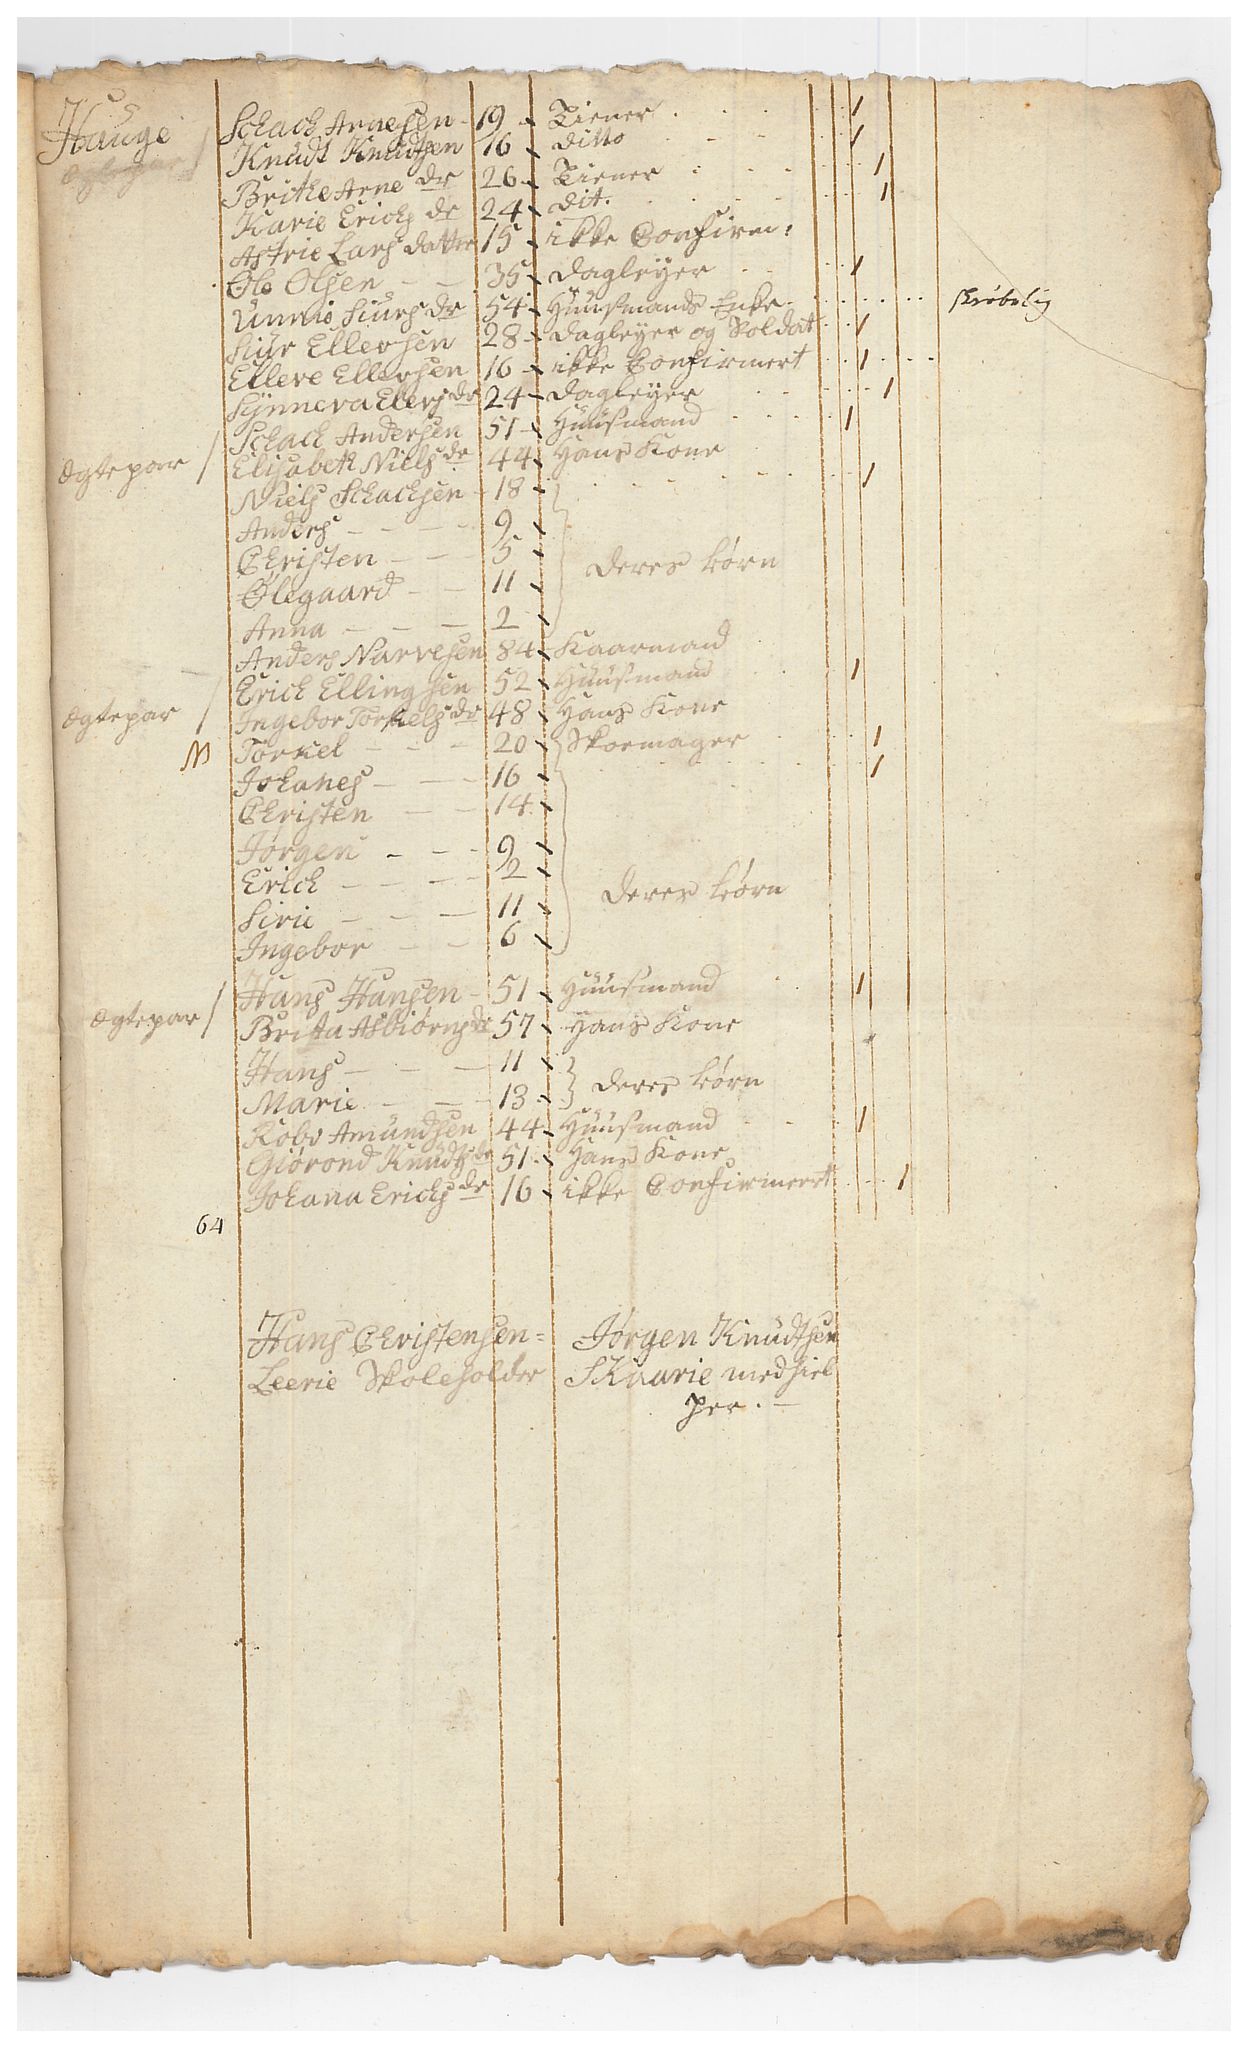 Hauge Schach Arnesen - 19 - Tiener 1
Knudt Knudtsen 16 - ditto 1
Brithe Arne dr 26 - Tiener 1
Karie Erichs dr 24 - dit. 1
Astrie Lars datter 15 - ikke Confirm:
Ole Olsen - - 35 - dagleyer 1
Unnie Siurs dr 54 - Huusmands Enke skrøbelig
Siur Ellersen 28 - dagleyer og Soldat 1
Ellere Ellersen 16 - ikke Confirmert 1
Synneva Ellers dr 24 - dagleyer 1
Schach Andersen 51 - Huusmand 1
Ægtepar / Elisabeth Niels dr 44 - Hans Kone
Niels Schachsen - 18 - 1
Anders - - - 9 -
Christen - - 5 -
deres børn
Ølegaard - - 11 -
Anna - - - 2 -
Anders Narvesen 84 - Kaarmand
Erich Ellingsen 52 - Huusmand 1
Ægtepar / Ingebor Torkels dr 48 - Hans Kone
M Torkel - - - 20 - Skoemager 1
Johanes - - - 16 - 1
Christen - - 14 -
Jørgen - - - 9 -
Erich - - - 2 -
deres børn
Sirie - - - 11 -
Ingebor - - 6 -
Hans Hansen - 51 - Huusmand 1
Ægtepar / Brita Asbiørns dr 57 - Hans Kone
Hans - - - 11 -
deres børn
Marie - - 13 -
Kobo Amundsen 44 - Huusmand 1
Giørond Knudts dr 51 - Hans Kone
Johana Erichs dr 16 - ikke Confirmert 1
64
Hans Christensen =
Leerie Skoleholder
Jørgen Knudtsen
Skaarie medhiel
per. -